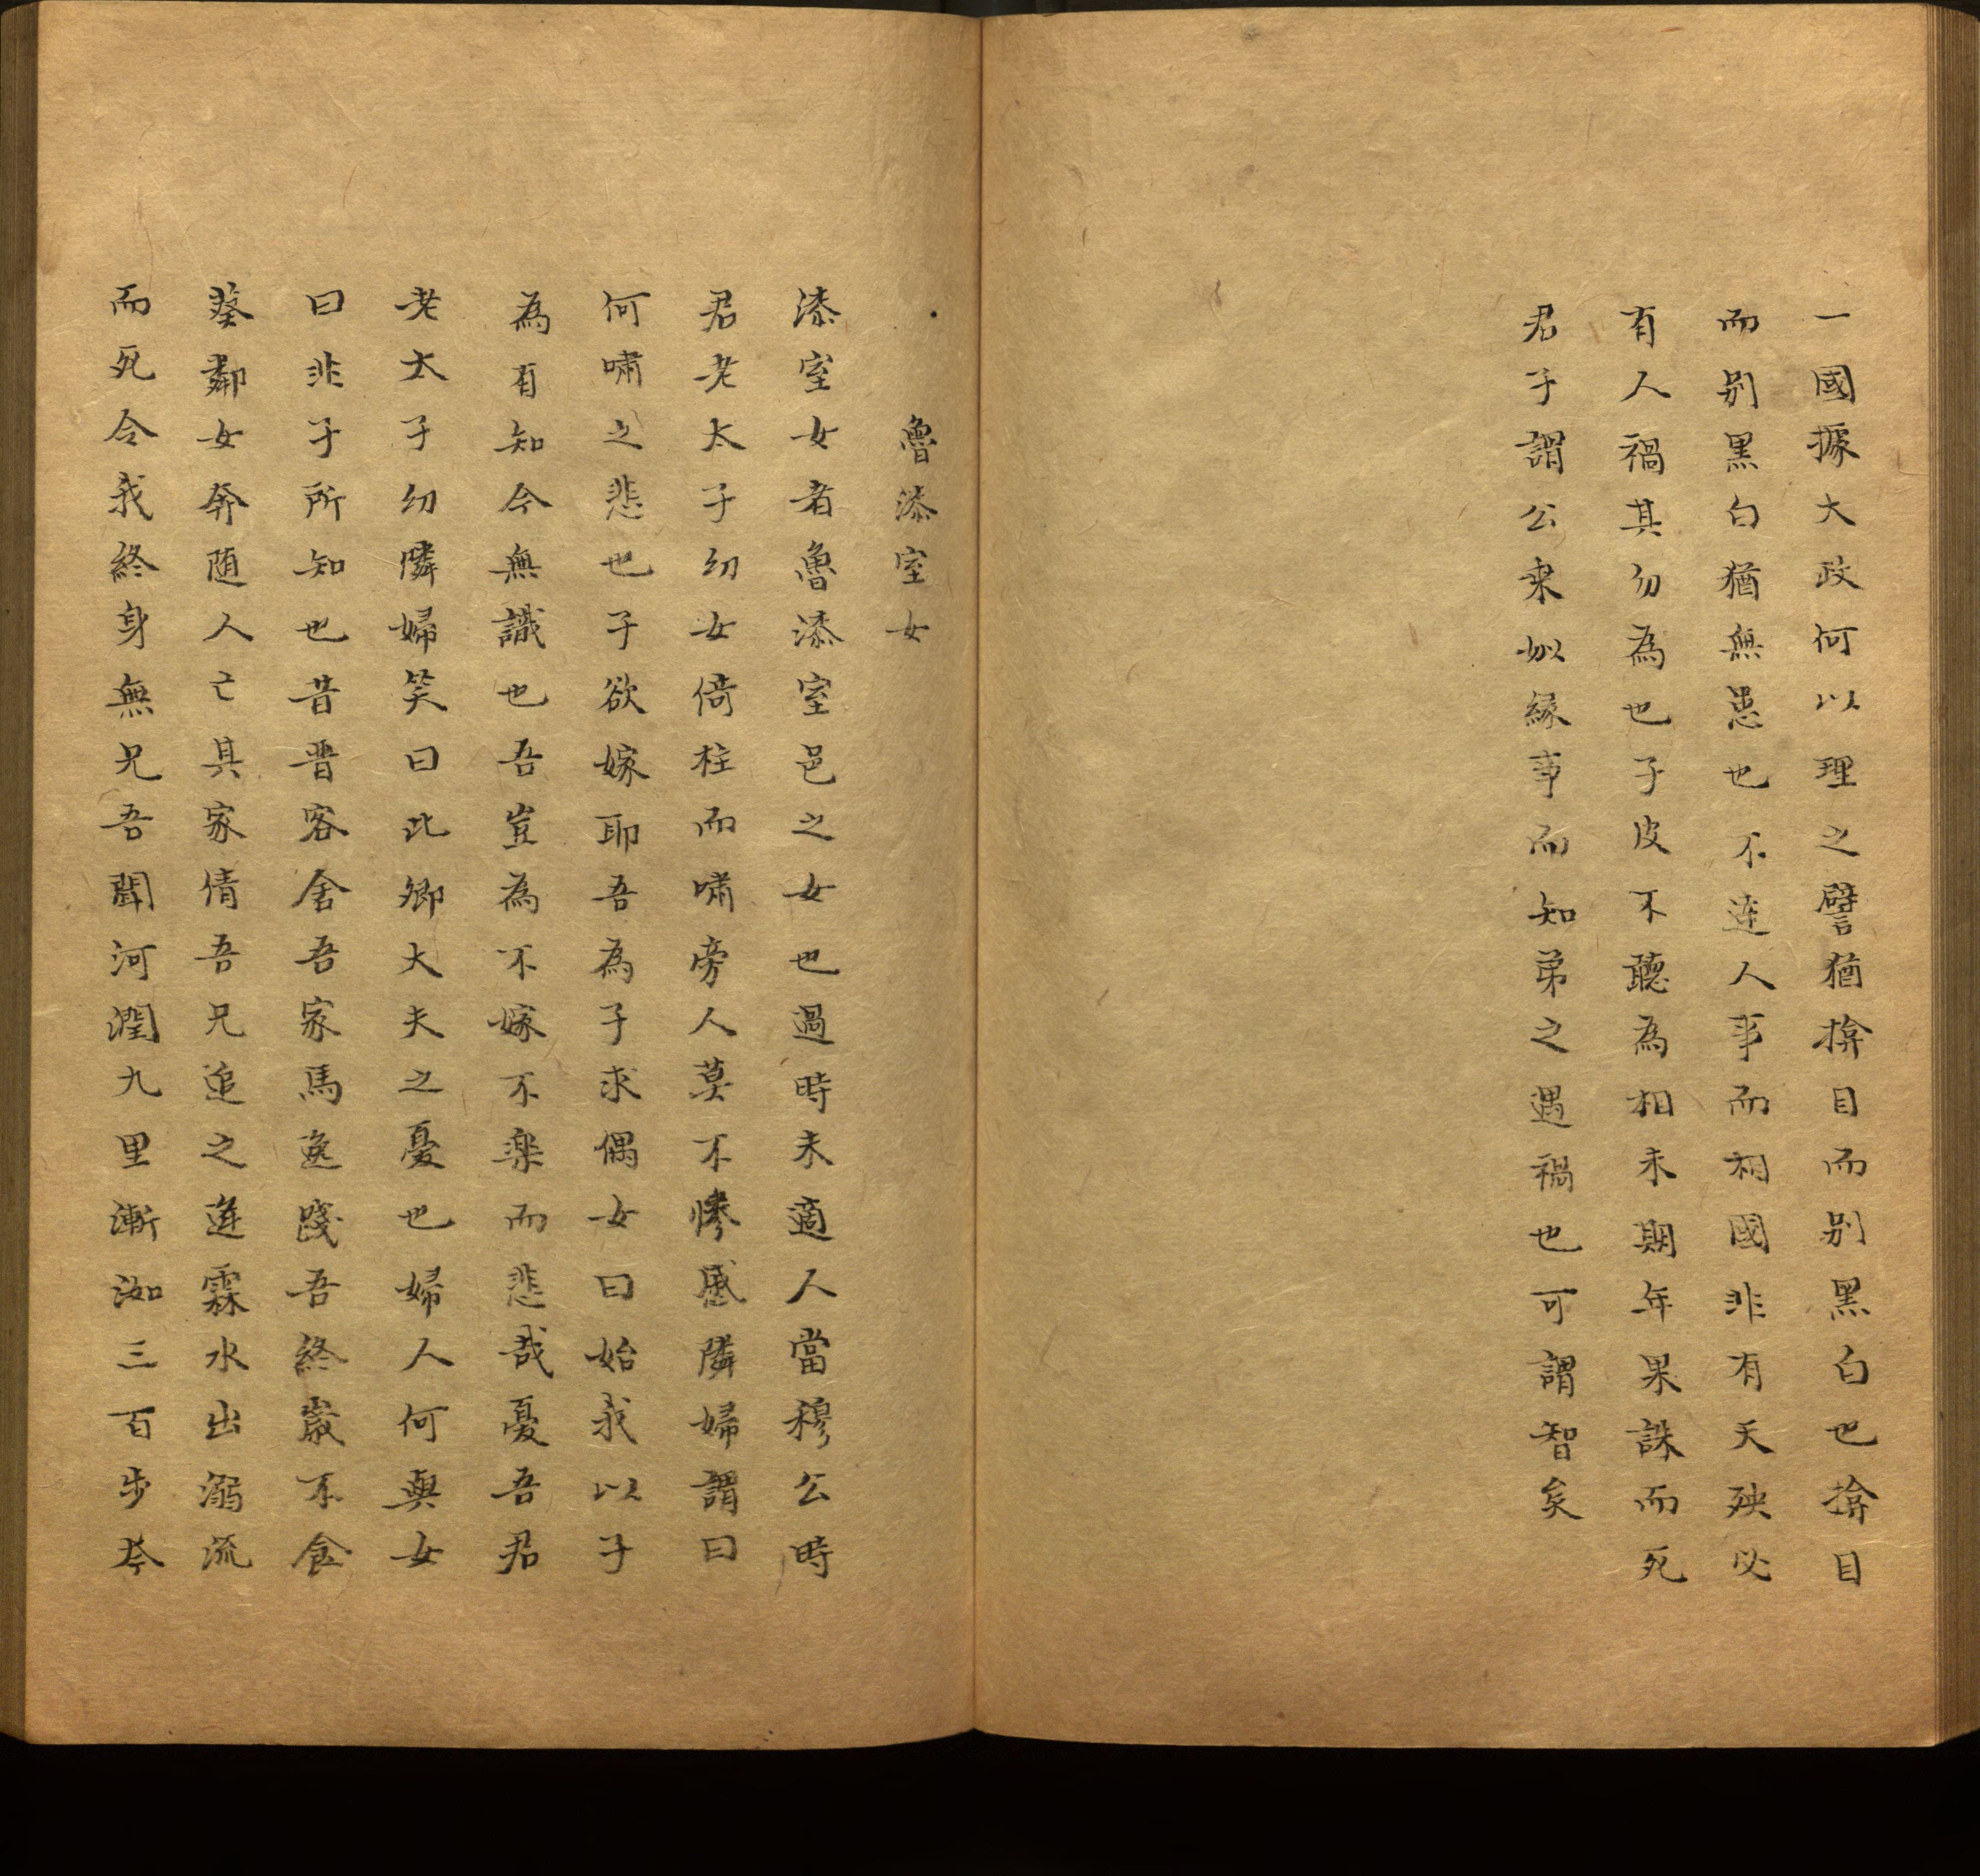 一國據大政何以理之譬猶揜目而别黑白也揜目
而别黑白猶無患也不達人事而相國非有天殃必
有人禍其勿為也子皮不聽為相未期年果誅而死
君子謂公乘姒緣事而知弟之遇禍也可謂智矣
魯漆室女
漆室女者魯漆室邑之女也過時未適人當穆公時
君老太子幼女倚柱而嘯旁人莫不慘慼隣婦謂曰
何嘯之悲也子欲嫁耶吾為子求偶女曰始我以子
為有知今無識也吾豈為不嫁不楽而悲哉憂吾君
老太子幼隣婦笑曰此卿大夫之憂也婦人何與女
曰非子所知也昔晋客舍吾家馬逸踐吾終嵗不食
葵鄰女奔随人亡其家倩吾兄追之逢霖水出溺流
而死令我終身無兄吾聞河潤九里漸洳三百步今